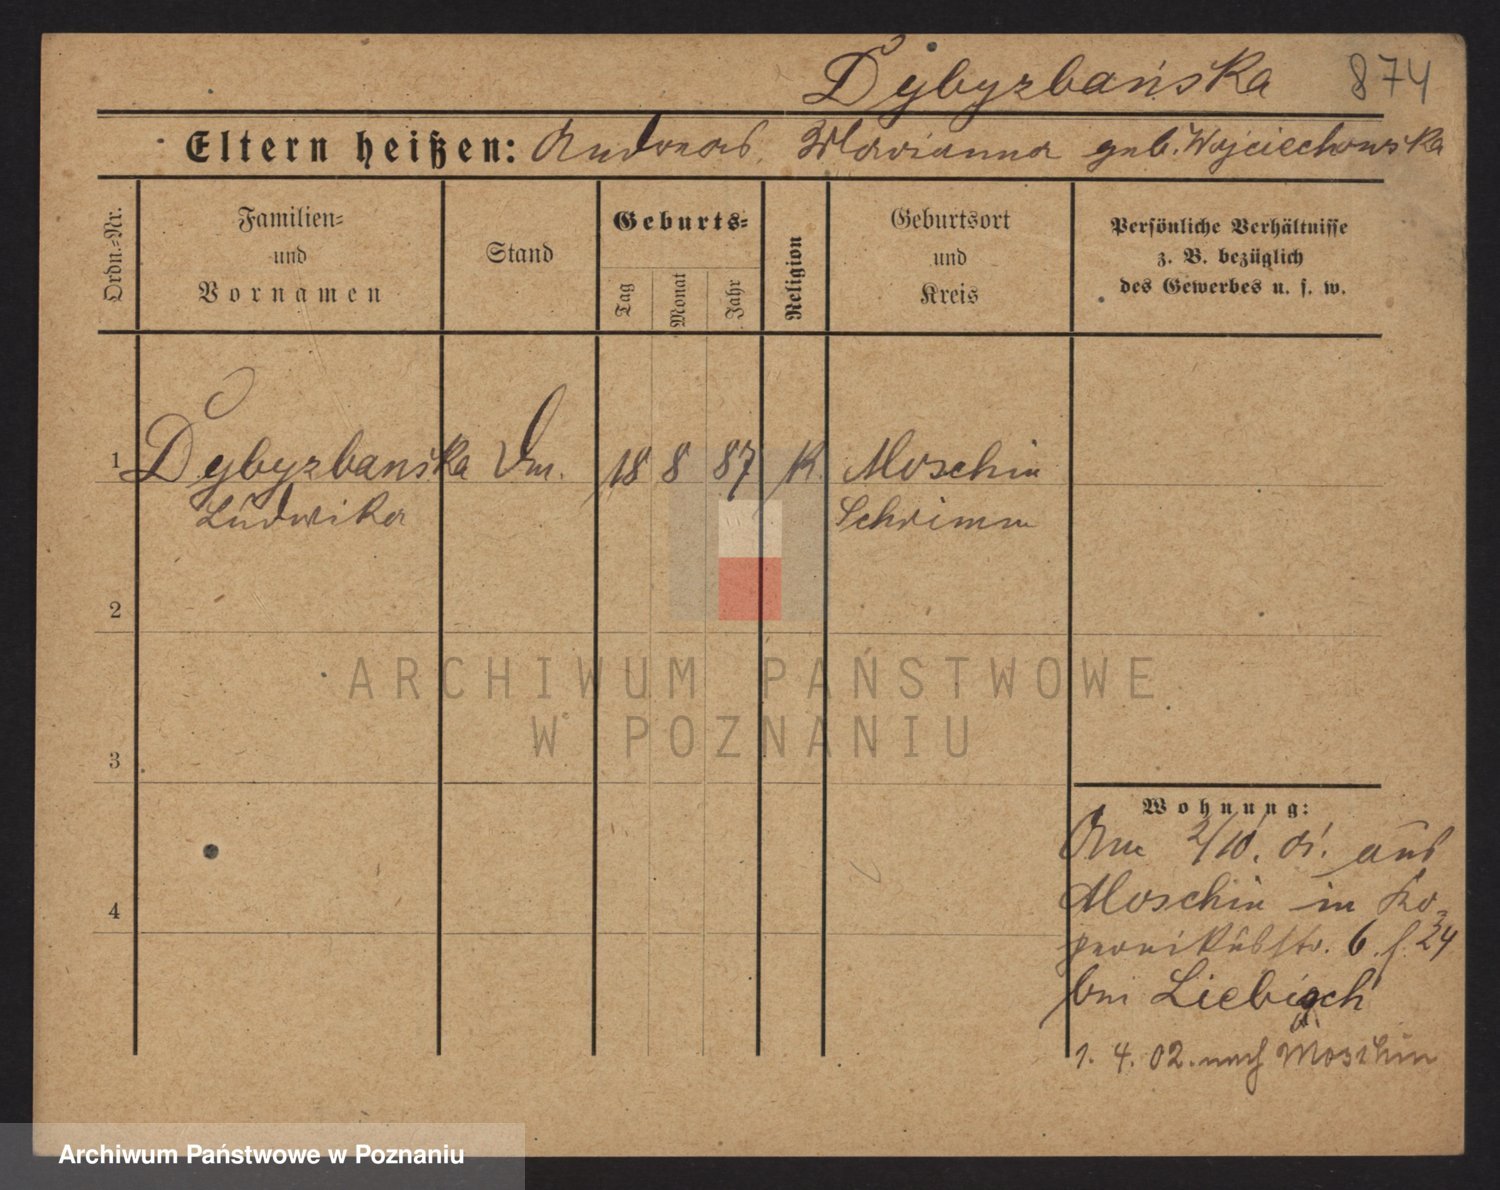 Dybyzbańska 874
Eltern heißen: Andreas, Marianna geb. Wojciechowska
Ordn.-Nr.
Familien-
und
Vornamen
Stand
Geburts-
Tag
Monat
Jahr
Religion
Geburtsort
und
Kreis
Persönliche Verhältnisse
z. B. bezüglich
des Gewerbes u. s. w.
1 Dybyzbanska 18 8 87 K. Moschin
Ludwika Schrimm
2
3
4
Wohnung:
Am 2/10. 01. aus
Moschin in Ko-
pernikusstr. 6. f. 24
bei Liebisch
1. 4. 02. nach Moschin
ARCHIWUM PAŃSTWOWE
W POZNANIU
Archiwum Państwowe w Poznaniu